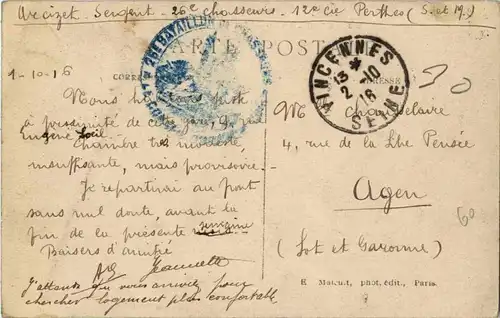 Arcizet - Sergent - 26e chasseurs - 12e Cie Perthes (S. et M.)
CARTE POSTALE
1-10-16
CORRES
ADRESSE
VINCENNES
13 * 
2 -10
16
SEINE
26e BATAILLON DE CHASSEURS
Nous habitons juste
à proximité de cette gare, 9, rue
Eugène
Chambre très modeste,
insuffisante, mais provisoire.
Je repartirai au front
sans nul doute, avant la
fin de la présente semaine
Baisers d'amitié
Jeannette
J'attends qu'on vous arrivé pour
chercher logement plus confortable
M
4, rue de la Lbe Pensée
Agen
(Lot et Garonne)
60
E Malcuit, phot. édit., Paris.